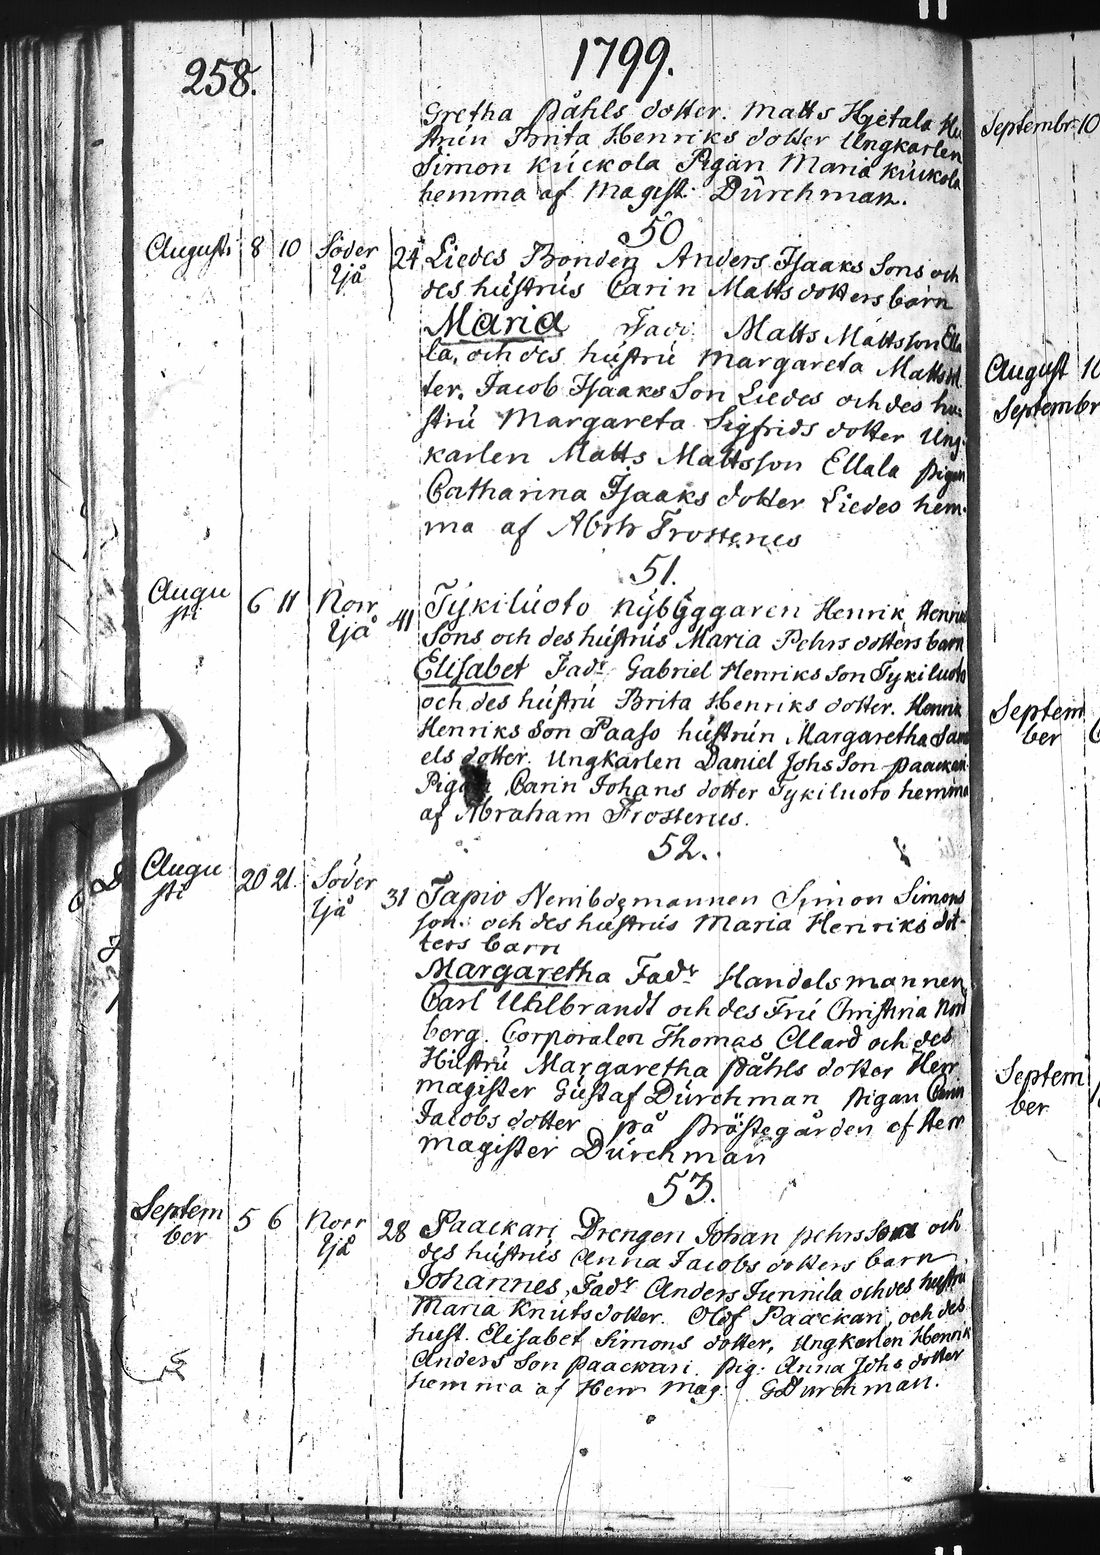 258.
1799.
Gretha Påhls dotter. Matts Hjetala Hu
strun Brita Henriks dotter Ungkarlen
Simon Kuckola Pigan Maria Kuckola
hemma af Magist. Dürchman.
50
Augusti 8 10 Söder 24 Liedes Bonden Anders Isaaks Sons och
Ijå des hustrus Carin Matts dotters barn
Maria Fadr Matts Mattsson Ella
la, och des hustru Margareta Matts dot
ter. Jacob Isaaks Son Liedes och des hu-
stru Margareta Sigfrids dotter Ung-
karlen Matts Mattsson Ellala pigan
Catharina Isaaks dotter Liedes hem-
ma af Abrh Frosterus
51.
Augu 6 11 Norr 41 Tykiluoto Nybyggaren Henrik Henriks
sti Ijå Sons och des hustrus Maria Pehrs dotters barn
Elisabet Fadr Gabriel Henriks Son Tykiluoto
och des hustru Brita Henriks dotter. Henrik
Henriks Son Paaso hustrun Margaretha Sam
els dotter. Ungkarlen Daniel Johs Son paackari
Pigan Carin Johans dotter Tykiluoto hemma
af Abraham Frosterus.
52.
Augu 20 21. Söder 31 Tapio Nembdemannen Simon Simons
sti Ijå son. och des hustrus Maria Henriks dot-
ters barn
Margaretha Fadr Handelsmannen
Carl Uhlbrandt och des Fru Christina Nord
berg. Corporalen Thomas Allard och des
Hustru Margaretha Påhls dotter Herr
magister Gustaf Dürchman pigan Carin
Jacobs dotter på Prästegården af Herr
magister Dürchman
53.
Septem 5 6 Norr 28 Paackari Drengen Johan pehrs Sons och
ber Ijå des hustrus Anna Jacobs dotters barn
Johannes, Fadr Anders Junnila och des hustru
Maria Knuts dotter. Olof Paackari, och des
hust. Elisabet Simons dotter, Ungkarlen Henrik
Anders Son paackari. pig: Anna Johs dotter
hemma af Herr Mag: G Durchman.
Septembr 10
August 10
Septembr
Septem
ber
Septem
ber